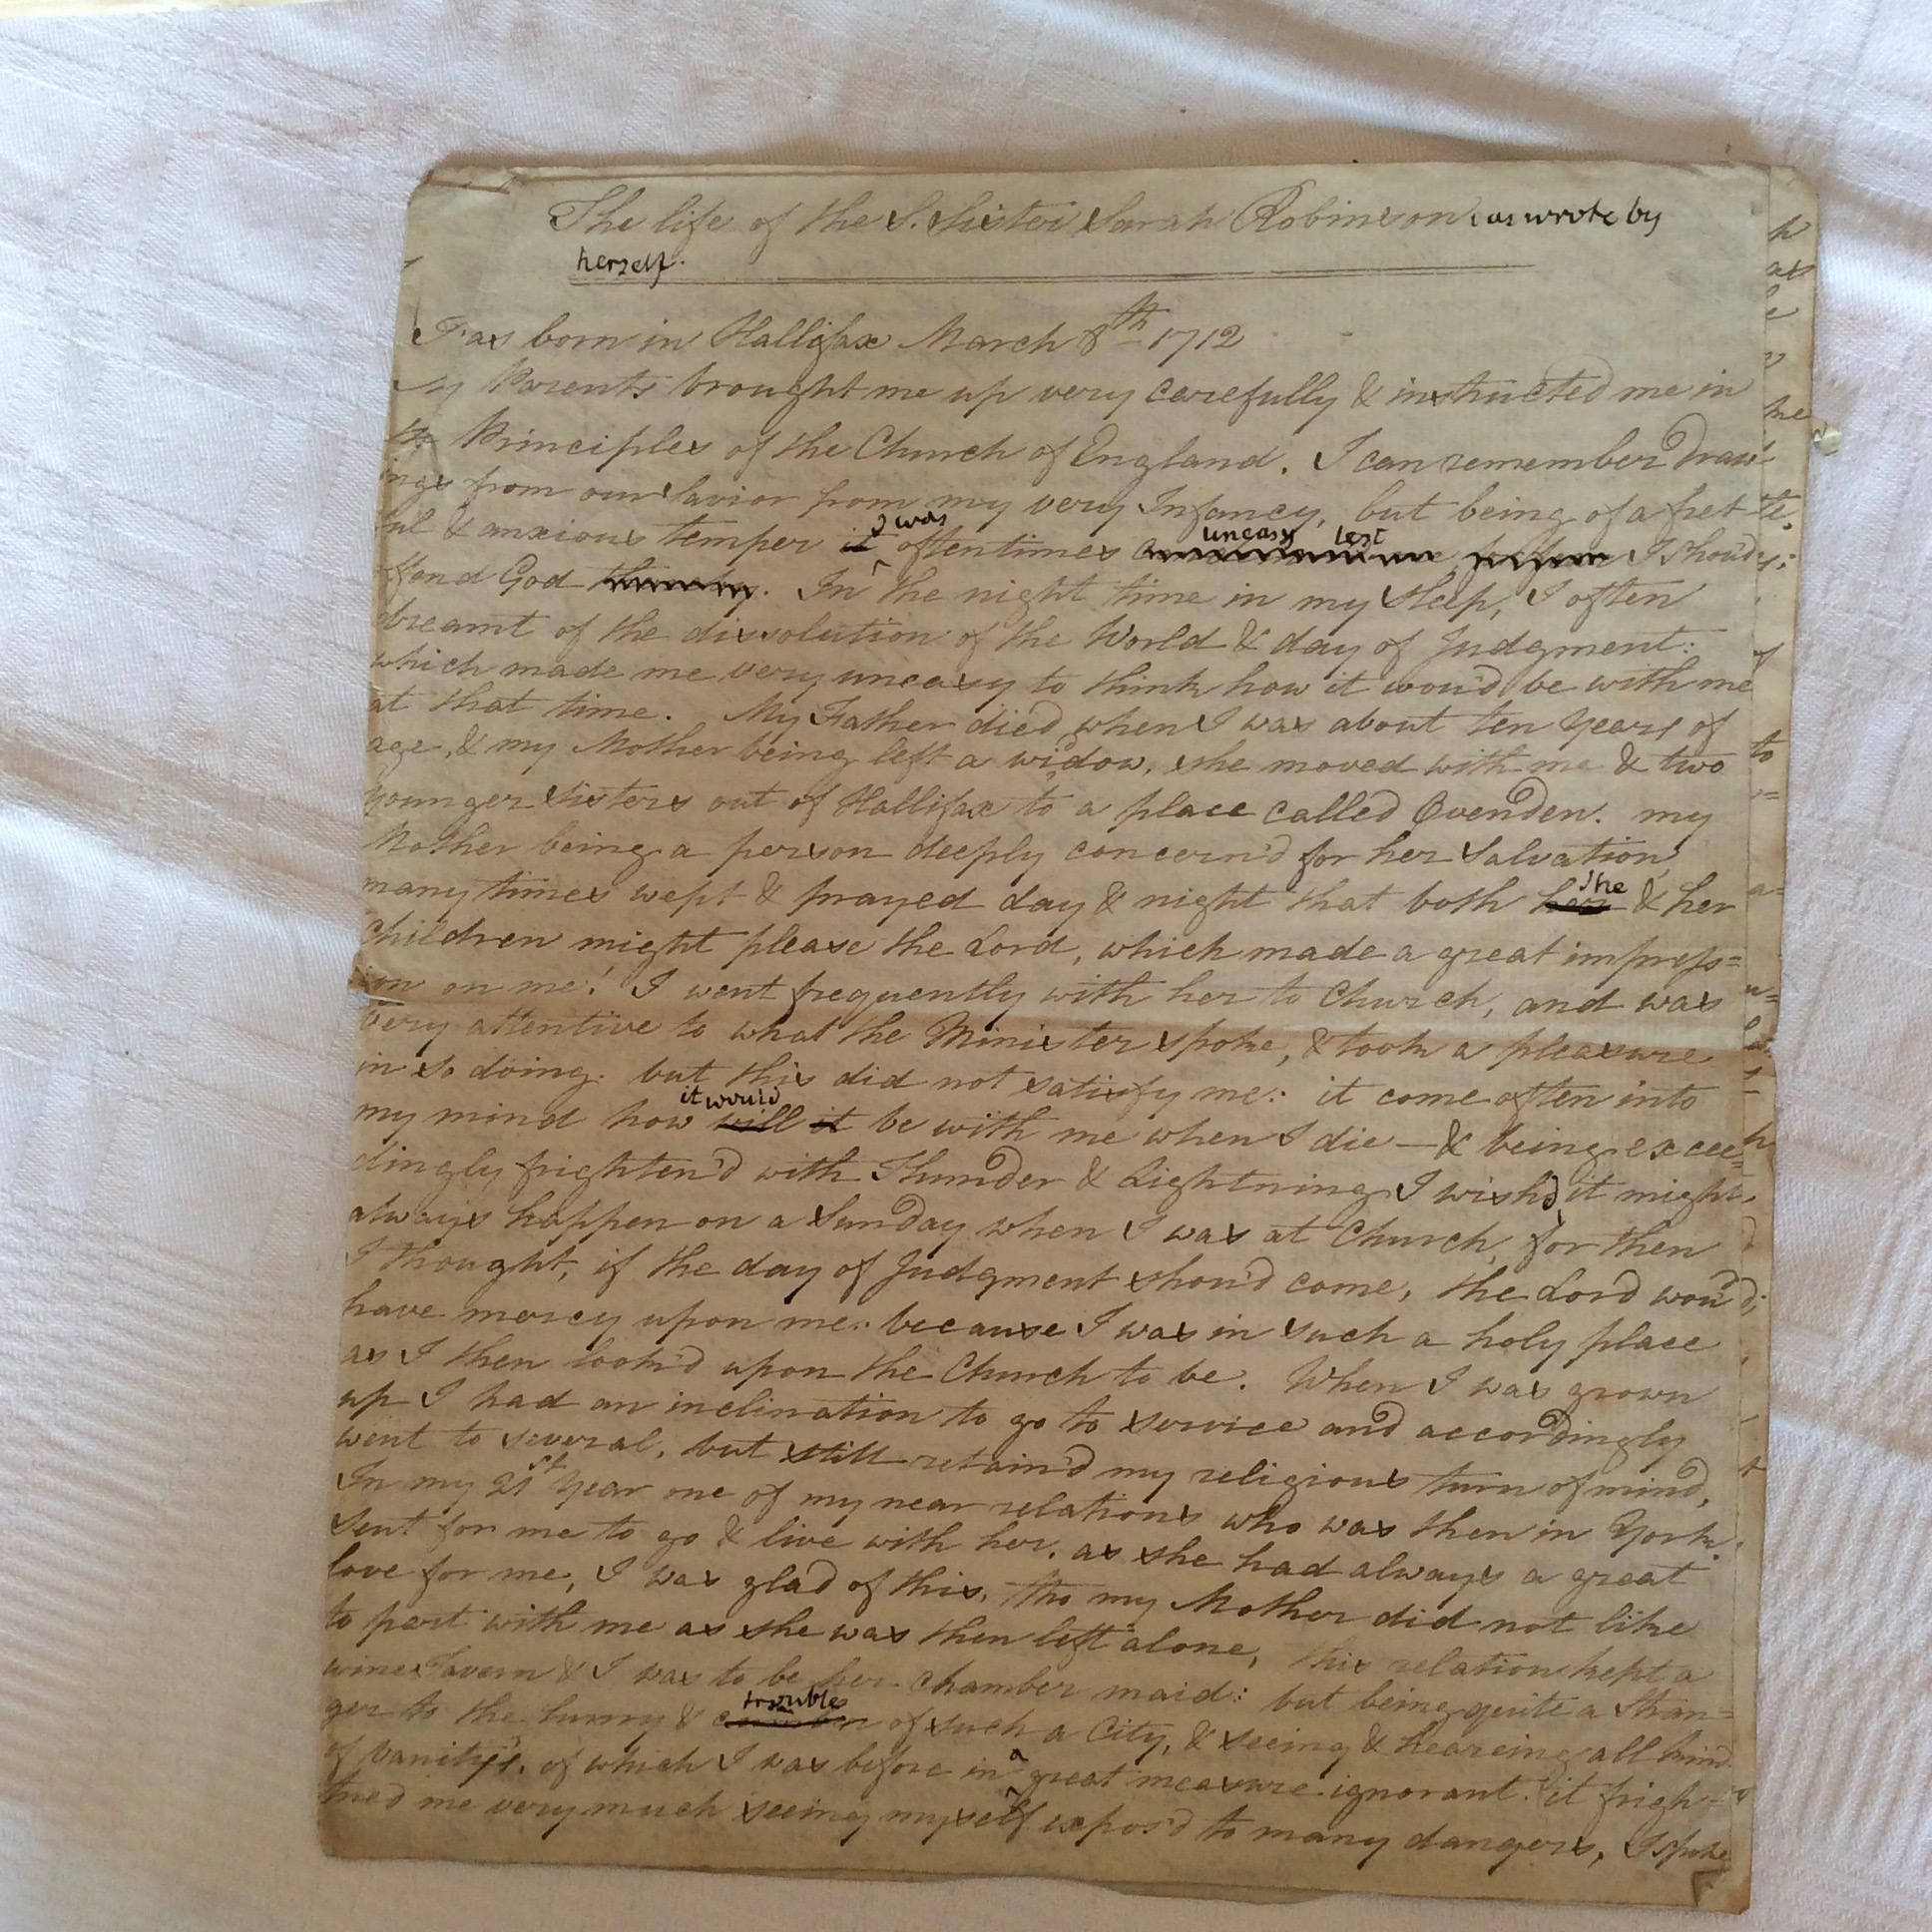 The life of the S. Sister Sarah Robinson, as wrote by
herself.
I was born in Hallifax March 8th 1712
My Parents brought me up very carefully & instructed me in
the Principles of the Church of England. I can remember draw-
ings from our Savior from my very Infancy, but being of a fret
ful & anxious temper it I was oftentimes uneasy lest I shou'd
offend God. In the night time in my Sleep, I often
dreamt of the dissolution of the World & day of Judgment:
which made me very uneasy to think how it wou'd be with me
at that time. My Father died when I was about ten Years of
age, & my Mother being left a widow, she moved with me & two
younger Sisters out of Hallifax to a place called Ovenden. my
Mother being a person deeply concern'd for her Salvation,
many times wept & prayed day & night that both her she & her
Children might please the Lord, which made a great impress=
ion on me! I went frequently with her to Church, and was
very attentive to what the Minister spoke, & took a pleasure
in so doing. but this did not satisfy me: it come often into
my mind how will it it wou'd be with me when I die — & being excee=
dingly frighten'd with Thunder & Lightning I wish'd it might
always happen on a Sunday when I was at Church, for then
I thought, if the day of Judgment shou'd come, the Lord wou'd
have mercy upon me: because I was in such a holy place
as I then look'd upon the Church to be. When I was grown
up I had an inclination to go to service and accordingly
went to several, but still retain'd my religious turn of mind,
In my 21st Year one of my near relations who was then in York
sent for me to go & live with her. as she had always a great
love for me, I was glad of this, tho my Mother did not like
to part with me as she was then left alone, this relation kept a
wine Tavern & I was to be her chamber maid: but being quite a Stran=
ger to the hurry & trouble of such a City, & seeing & heareing all kind
of vanity's, of which I was before in a great measure ignorant. it frigh=
tned me very much seeing myself expos'd to many dangers, I spoke